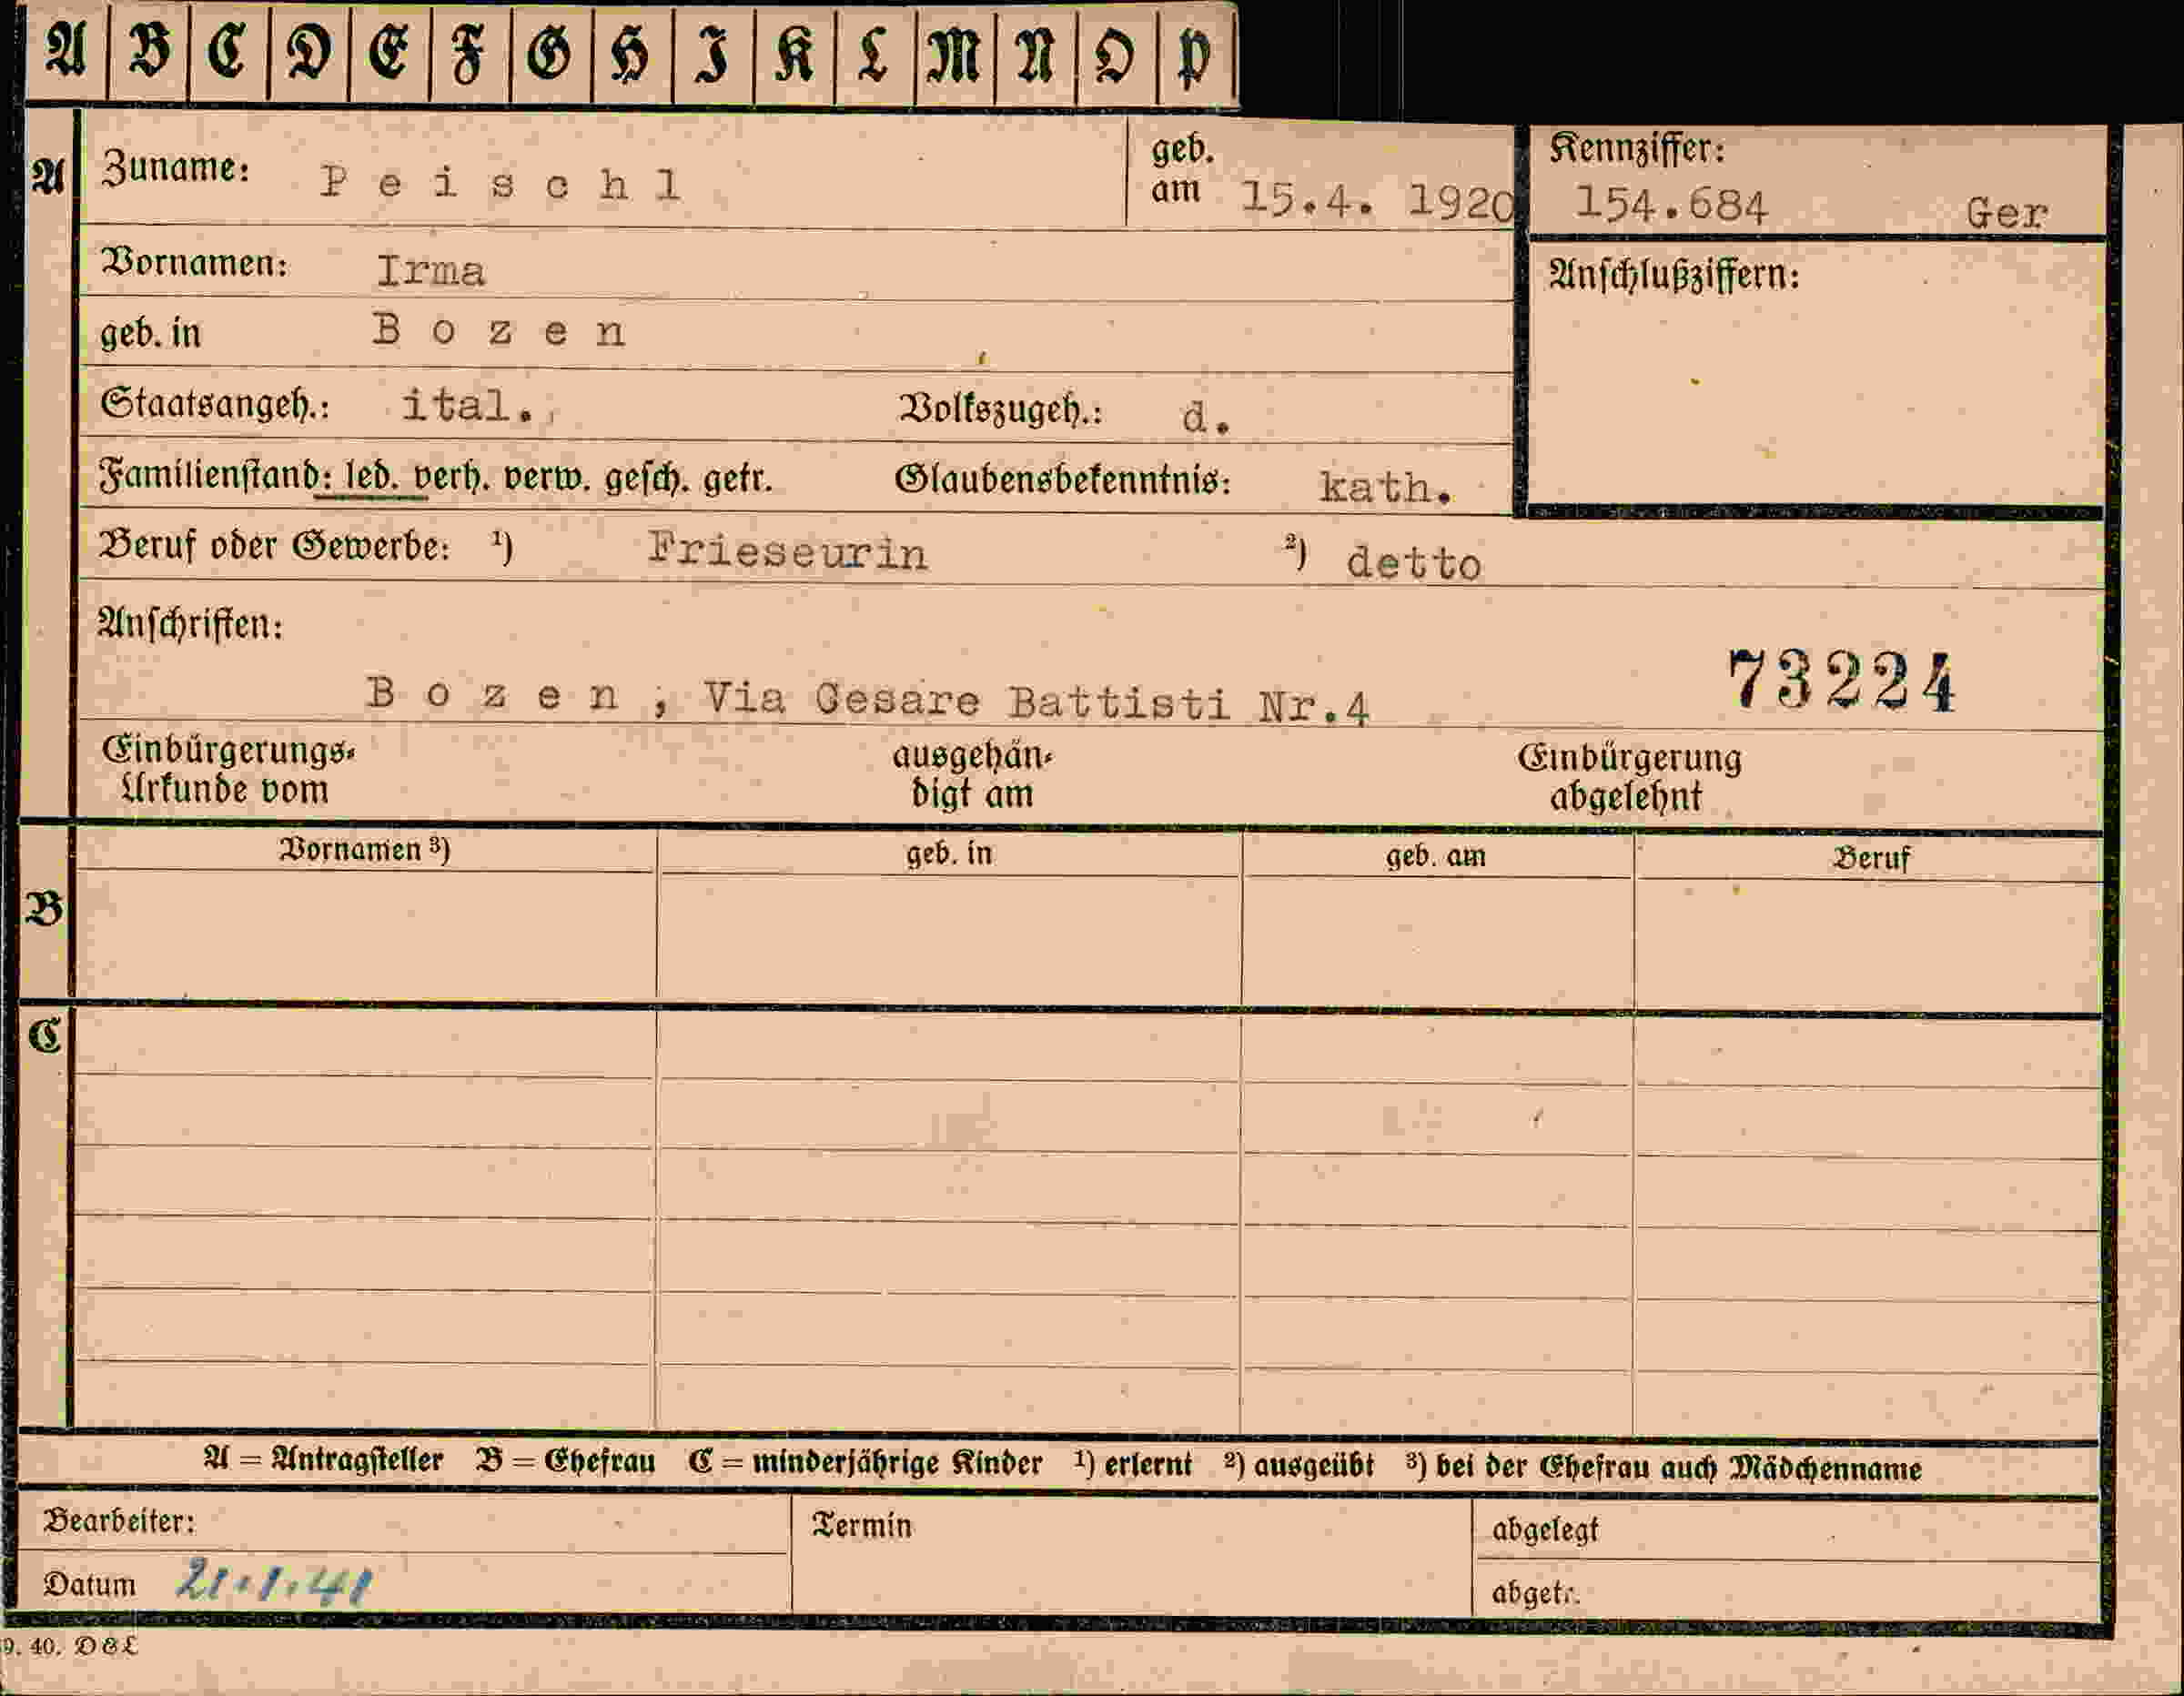 A B C D E F G H I K L M N O P
A Zuname: Peischl geb. am 15.4. 1920 Kennziffer: 154.684 Ger
Vornamen: Irma Anschlußziffern:
geb. in Bozen
Staatsangeh.: ital. Volkszugeh.: d.
Familienstand: led. verh. verw. gesch. getr. Glaubensbekenntnis: kath.
Beruf oder Gewerbe: ¹) Frieseurin ²) detto
Anschriften:
73224
Bozen, Via Cesare Battisti Nr.4
Einbürgerungs- ausgehän- Einbürgerung
Urkunde vom digt am abgelehnt
Vornamen ³) geb. in geb. am Beruf
B
C
A = Antragsteller B = Ehefrau C = minderjährige Kinder ¹) erlernt ²) ausgeübt ³) bei der Ehefrau auch Mädchenname
Bearbeiter: Termin abgelegt
Datum 21.1.41 abgetr.
9. 40. D&L